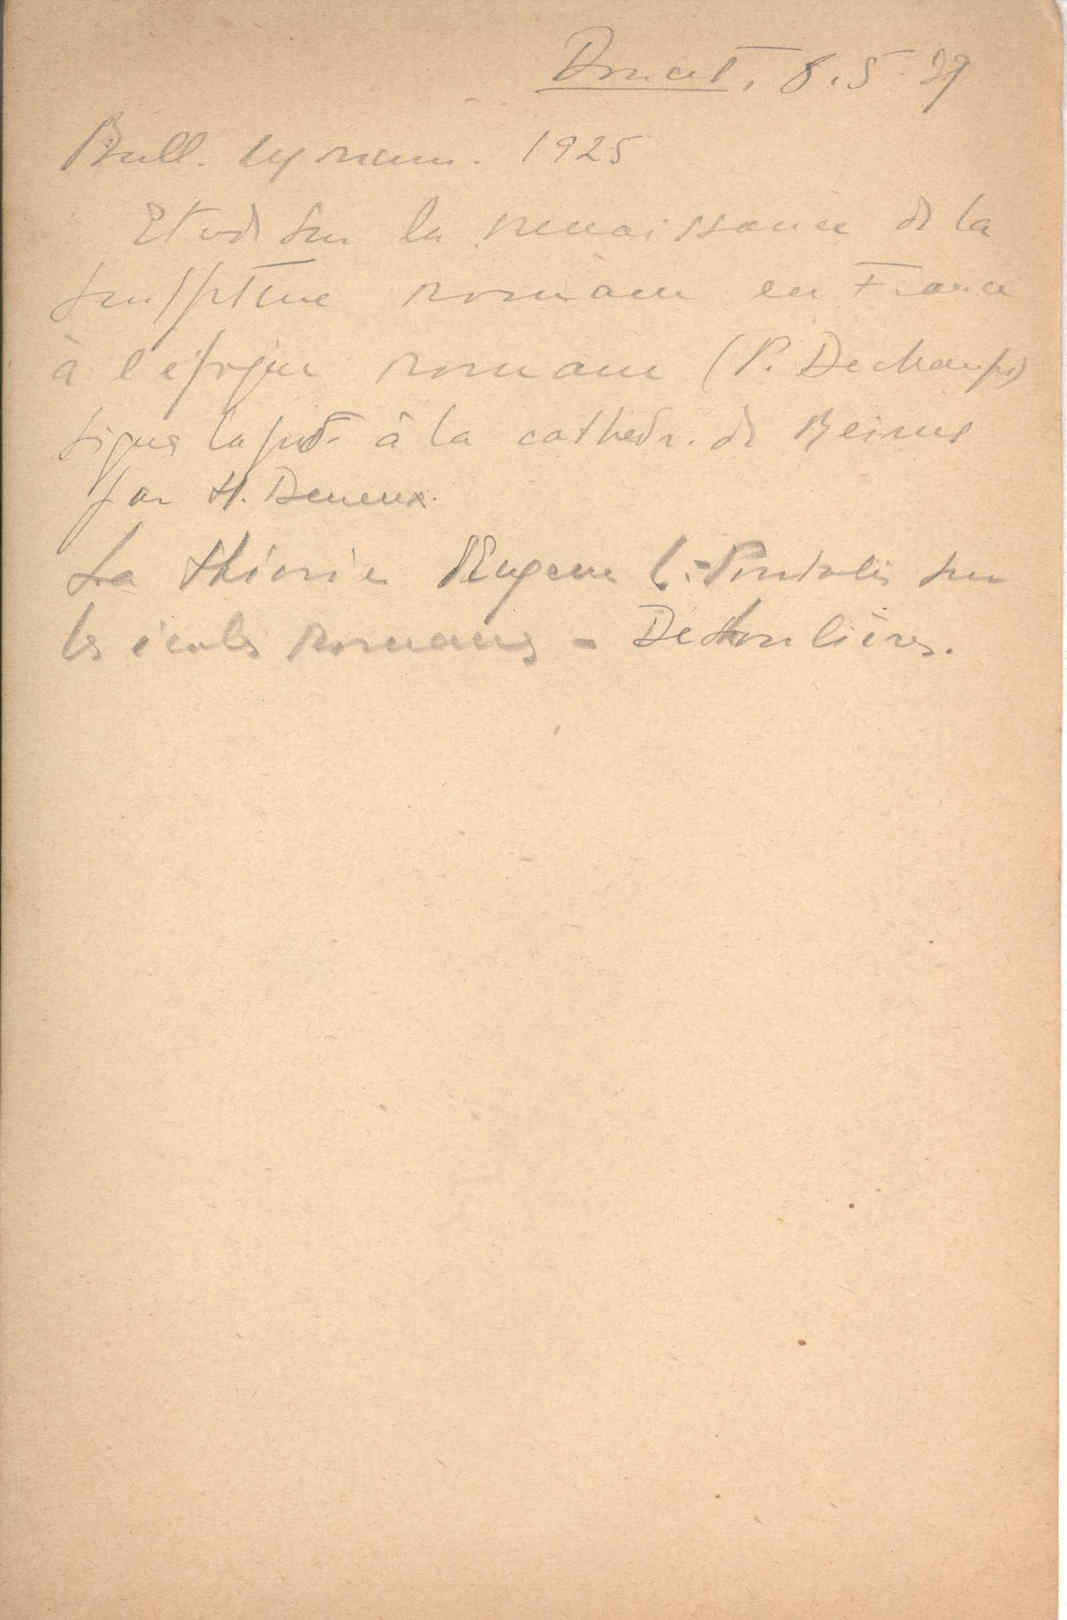 Doucet, 8.5.29
Bull. Monum. 1925
Etude sur la renaissance de la
sculpture romane en France
à l'époque romane (P. Deschamps)
signes lapid. à la cathédr. de Reims
par H. Deneux.
La théorie d'Eugène L. sur
les écoles romanes - Deshoulières.